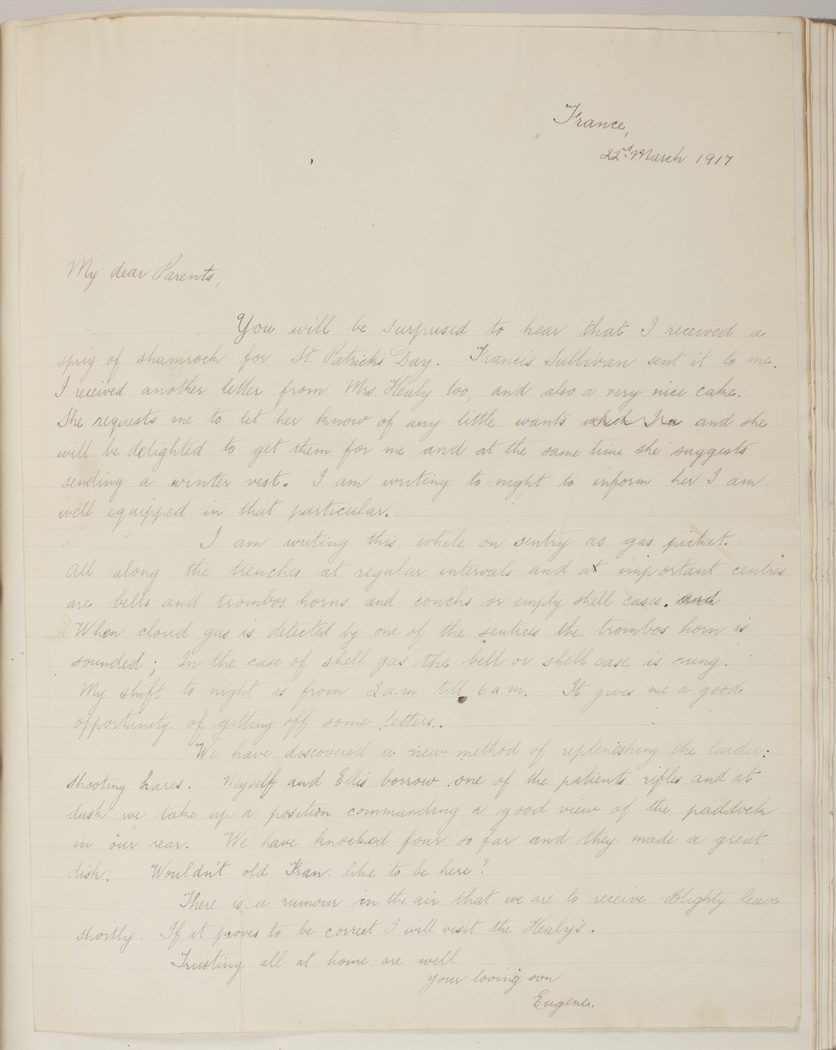 France,
22nd March 1917
My dear Parents,
You will be surprised to hear that I received a
sprig of shamrock for St. Patrick's Day. Francis Sullivan sent it to me.
I received another letter from Mrs. Healy too, and also a very nice cake.
She requests me to let her know of any little wants which I and she
will be delighted to get them for me and at the same time she suggests
sending a winter vest. I am writing to-night to inform her I am
well equipped in that particular.
I am writing this while on sentry as gas picket.
All along the trenches at regular intervals and at important centres
are bells and trombos horns and conchs or empty shell cases. and
When cloud gas is detected by one of the sentries the trombos horn is
sounded; In the case of shell gas the bell or shell case is rung.
My shift to-night is from 2 a.m till 6 a m. It gives me a good
opportunity of getting off some letters.
We have discovered a new method of replenishing the larder:
shooting hares. Myself and Ellis borrow one of the patients rifles and at
dusk we take up a position commanding a good view of the paddock
in our rear. We have knocked four so far and they made a great
dish. Wouldn't old like to be here?
There is a rumour in the air that we are to receive Blighty leave
shortly. If it proves to be correct I will visit the Healy's.
Trusting all at home are well
your loving son
Eugene.